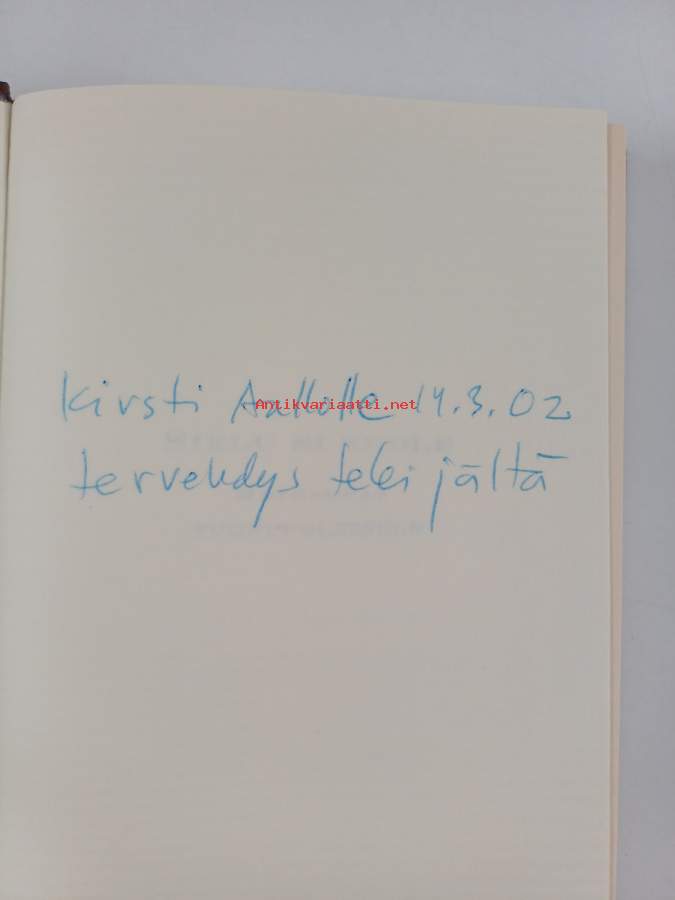 Kirsti Aallolle 14.3.02
Antikvariaatti.net
tervehdys tekijältä